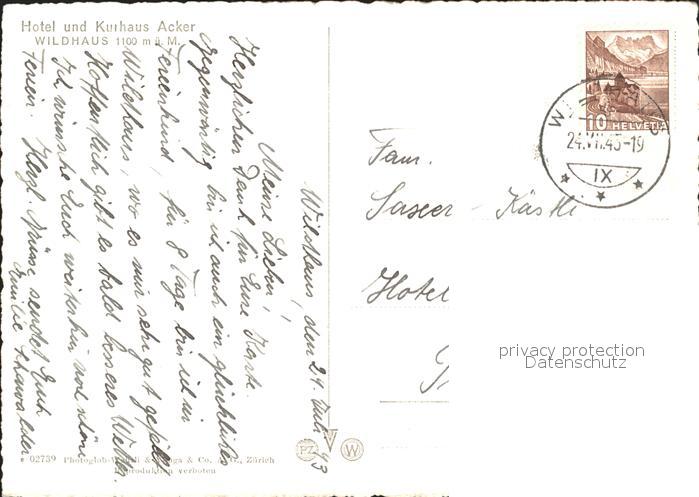 Hotel und Kurhaus Acker
WILDHAUS 1100 m ü. M.
Wildhaus, den 24. Juli 43
Meine Lieben!
Herzlichen Dank für Eure Karte.
Gegenwärtig bin ich auch ein glückliches
Ferienkind, für 8 Tage bin ich in
Wildhaus, wo es mir sehr gut gefällt.
Hoffentlich gibt es bald besseres Wetter.
Ich wünsche Euch weiterhin noch schöne
Ferien. Herzl. Grüsse sendet Euch
Emilie Schawalder
10 HELVETIA
24.VII.43-19
IX
Fam.
Saxer - Kästli
Hotel
privacy protection
Datenschutz
02739 Photoglob-Wehrli & Vouga & Co. A.G., Zürich
Reproduktion verboten
PZ
W